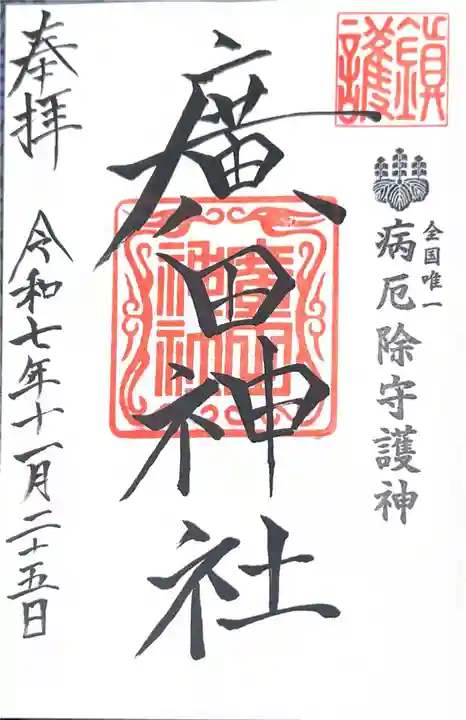 鎮護
全国唯一
病厄除守護神
廣田神社
廣田神社
奉拝
令和七年十一月二十五日